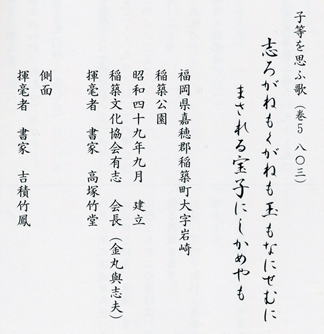 子等を思ふ歌（巻5 八〇三）
志ろがねもくがねも玉もなにせむに
まされる宝子にしかめやも
福岡県嘉穂郡稲築町大字岩崎
稲築公園
昭和四十九年九月 建立
稲築文化協会有志 会長（金丸與志夫）
揮毫者 書家 高塚竹堂
側面
揮毫者 書家 吉積竹鳳